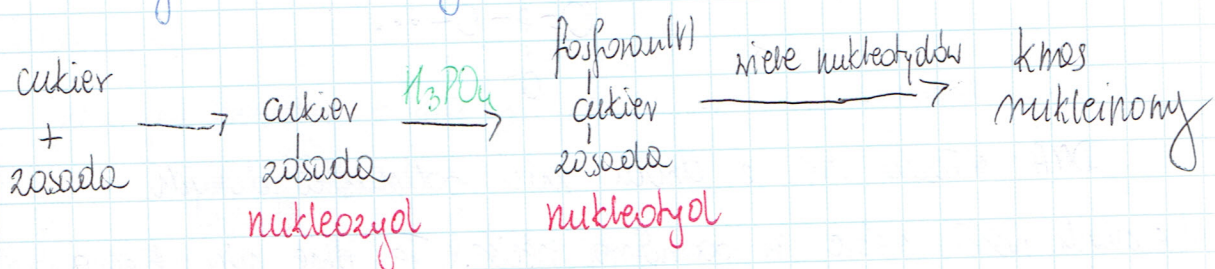 cukier
+
zasada
cukier
zasada
nukleozyd
H₃PO₄
fosforan(V)
cukier
zasada
nukleotyd
wiele nukleotydów
kwas
nukleinowy